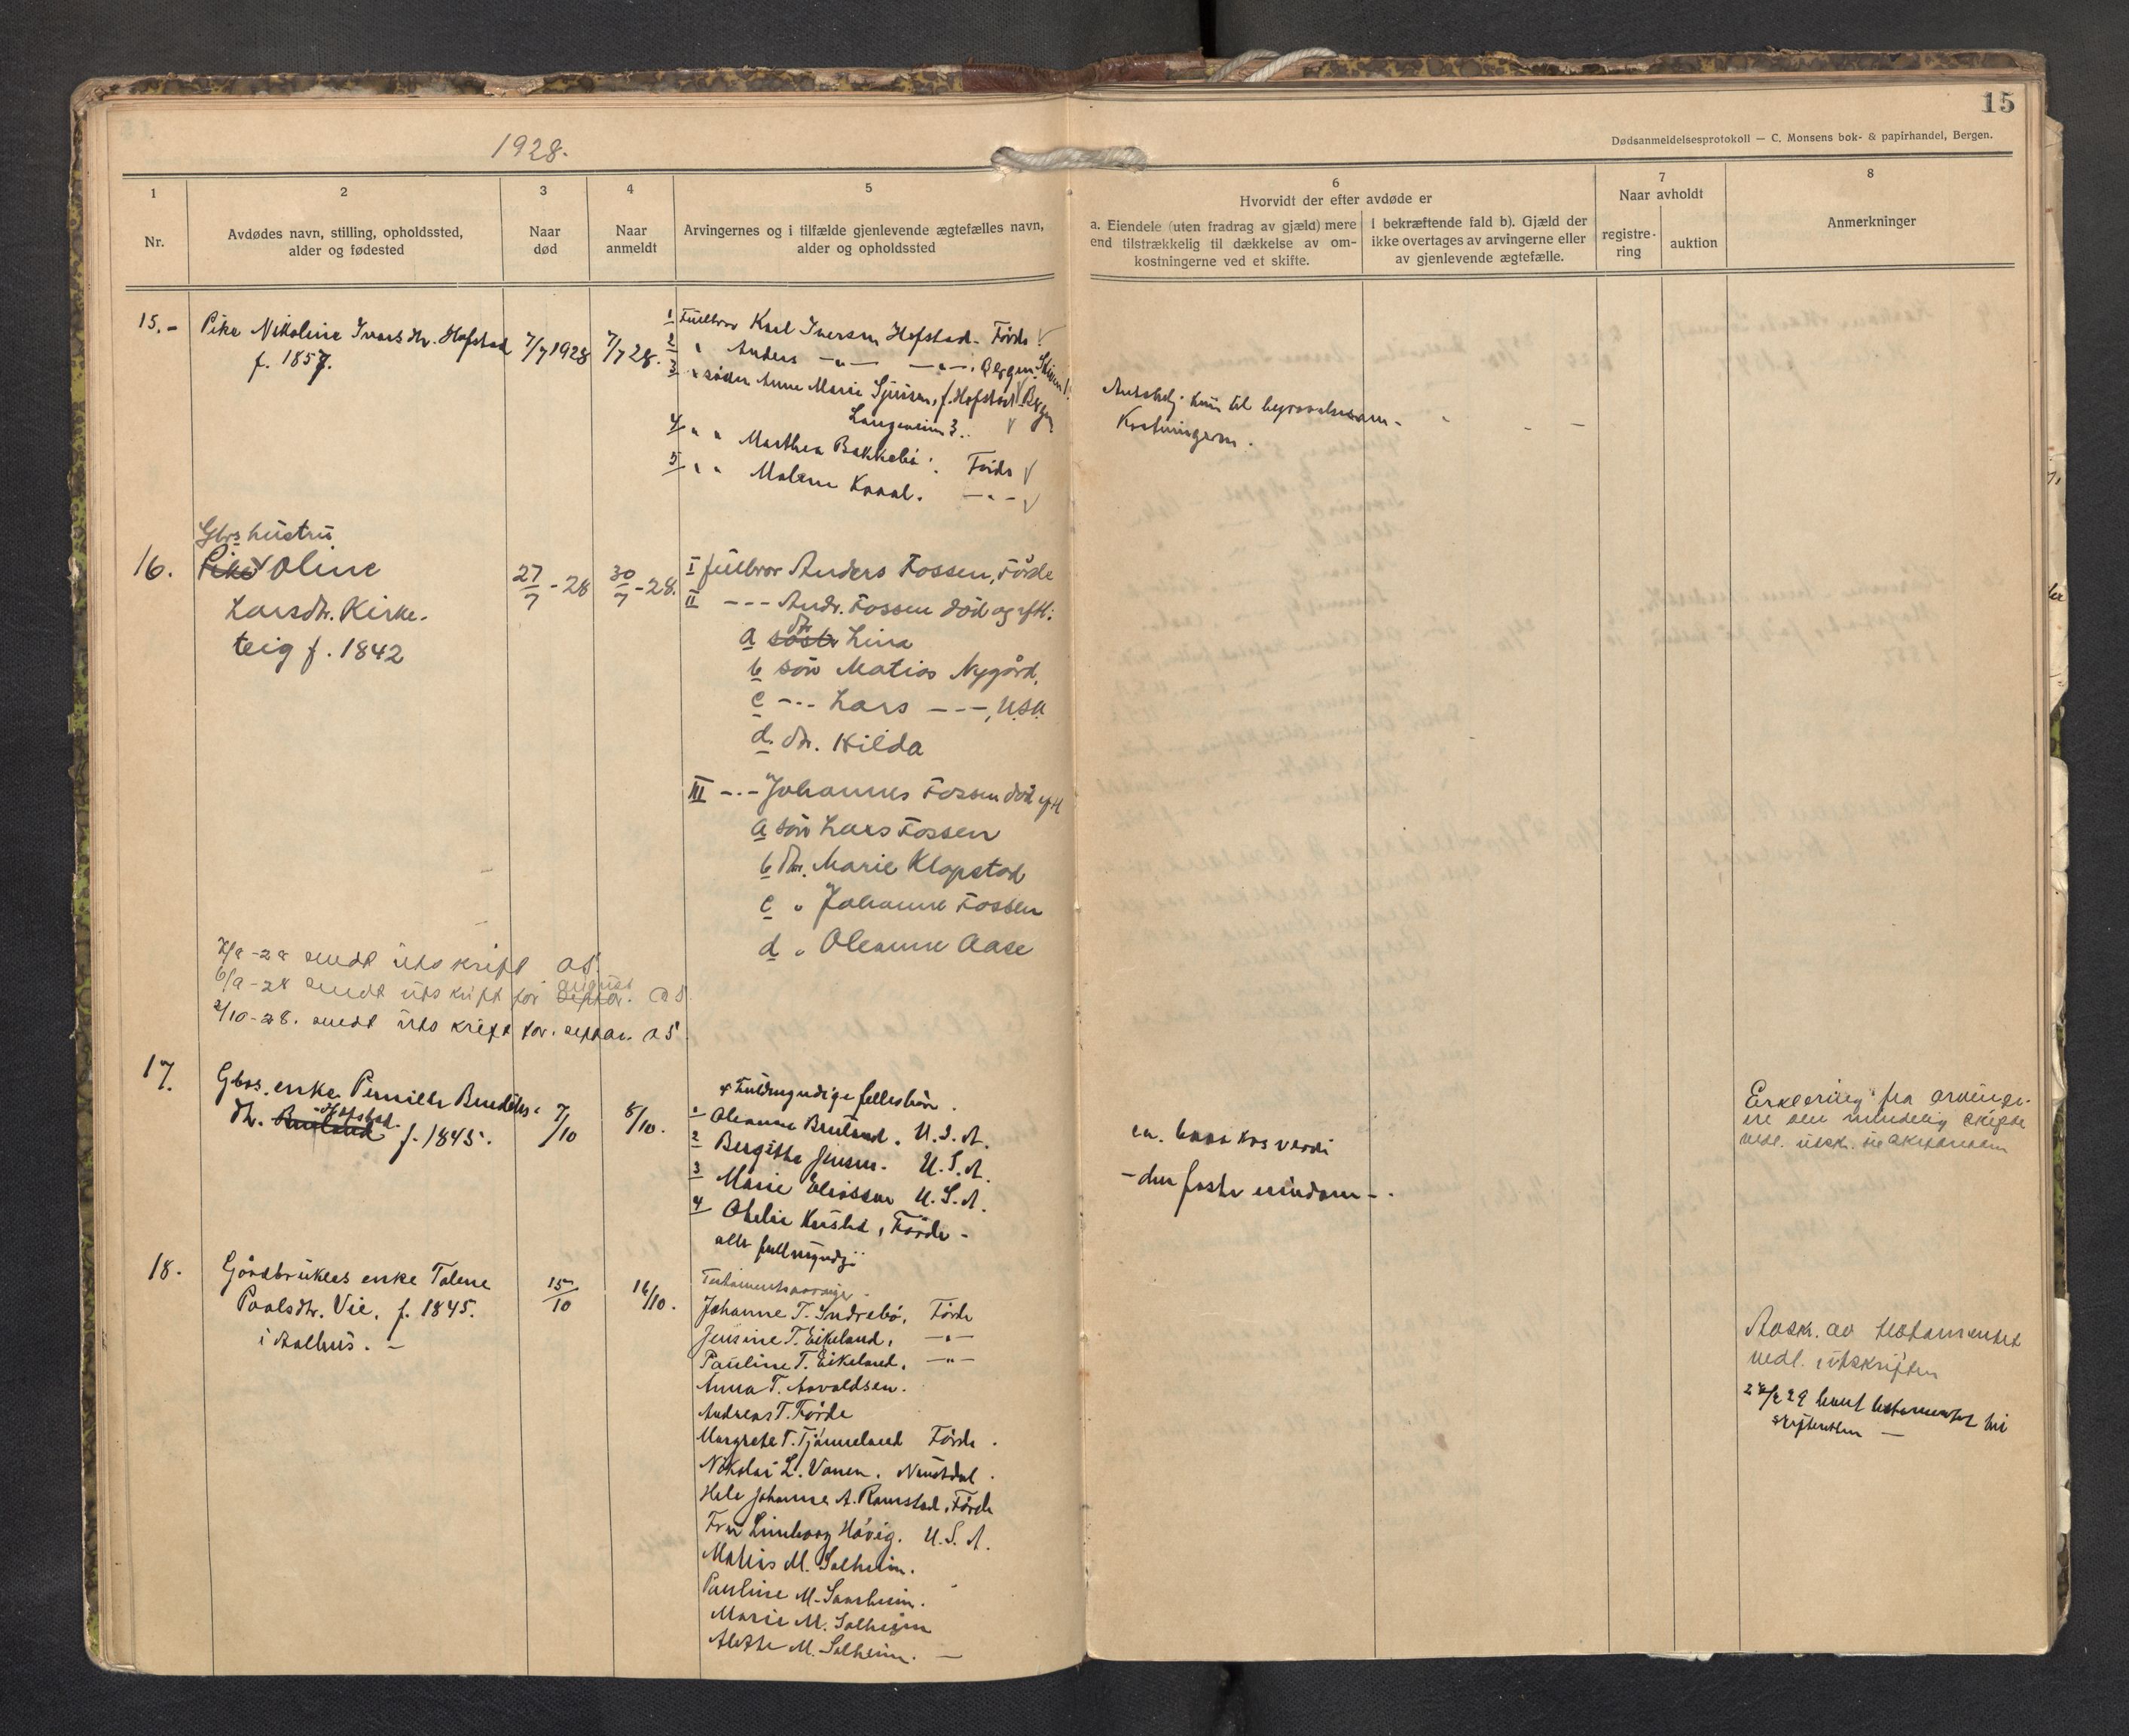 15
Dødsanmeldelsesprotokoll — C. Monsens bok- & papirhandel, Bergen.
1928.
1
Nr.
2
Avdødes navn, stilling, opholdssted,
alder og fødested
3
Naar
død
4
Naar
anmeldt
5
Arvingernes og i tilfælde gjenlevende ægtefælles navn,
alder og opholdssted
6
Hvorvidt der efter avdøde er
a. Eiendele (uten fradrag av gjæld) mere
end tilstrækkelig til dækkelse av om-
kostningerne ved et skifte.
I bekræftende fald b). Gjæld der
ikke overtages av arvingerne eller
av gjenlevende ægtefælle.
7
Naar avholdt
registre-
ring
auktion
8
Anmerkninger
15.-
Pike Nikoline Ivarsdtr. Hofstad
f. 1857.
7/7 1928
7/7 28.
1 Fullbror Karl Iversen Hofstad. Förde
2 " Anders —"— —"— Bergen
3 " söster Anne Marie f. Hofstad Bergen
4 " " Marthea Bakkebö. Förde
5 " " Malene —"—
kun til
16.
Gbrs hustru
Pike Oline
Larsdtr. Kirke-
teig f. 1842
27/7 - 28
30/7 - 28.
I fullbror Anders Fossen, Förde
II --- Andr. Fossen död og eft:
a söstr dtr Lina
b sön Matias Nygård,
c --- Lars ---, USA
d dtr. Hilda
III --- Johannes Fossen död eft
a sön Lars Fossen
b dtr. Marie Klopstad
c " Johanne Fossen
d " Oleanne Aase
sendt utskrift
6/9-28 sendt utskrift for septbr. august
2/10-28. sendt utskrift for septbr.
17.
Gbrs. enke Pernille Bendiks-
dtr. Bruland Hofstad. f. 1845.
7/10
8/10.
Fuldmyndige fellesbörn.
1 Oleanne Bruland. U.S.A.
2 Bergitha Jensen. U.S.A.
3 Marie Eliassen U.S.A.
4 Förde -
alle fullmyndig
verdi
- den faste eiendom -
Erklering fra arvinge-
18.
Gårdbrukers enke Talene
Paalsdtr. Vie, f. 1845.
i Aalhus. -
15/10
16/10.
Testamentsarvinge.
Johanne T. Indrebö, Förde
Jensine T. Eikeland, —"—
Pauline T. Eikeland, —"—
Anna T. Asvaldsen.
Andreas T. Förde
Margrete T. Tjönneland Förde.
Nikolai L. Vonen. Naustdal.
Johanne A. Ramstad, Förde
Fru Hövig. U.S.A.
Matias M. Solheim.
Pauline M.
Marie M. Solheim
Alette M. Solheim. —
Avsk. av testamentet
vedl. utskriften
29 testamentet til
skifteretten —